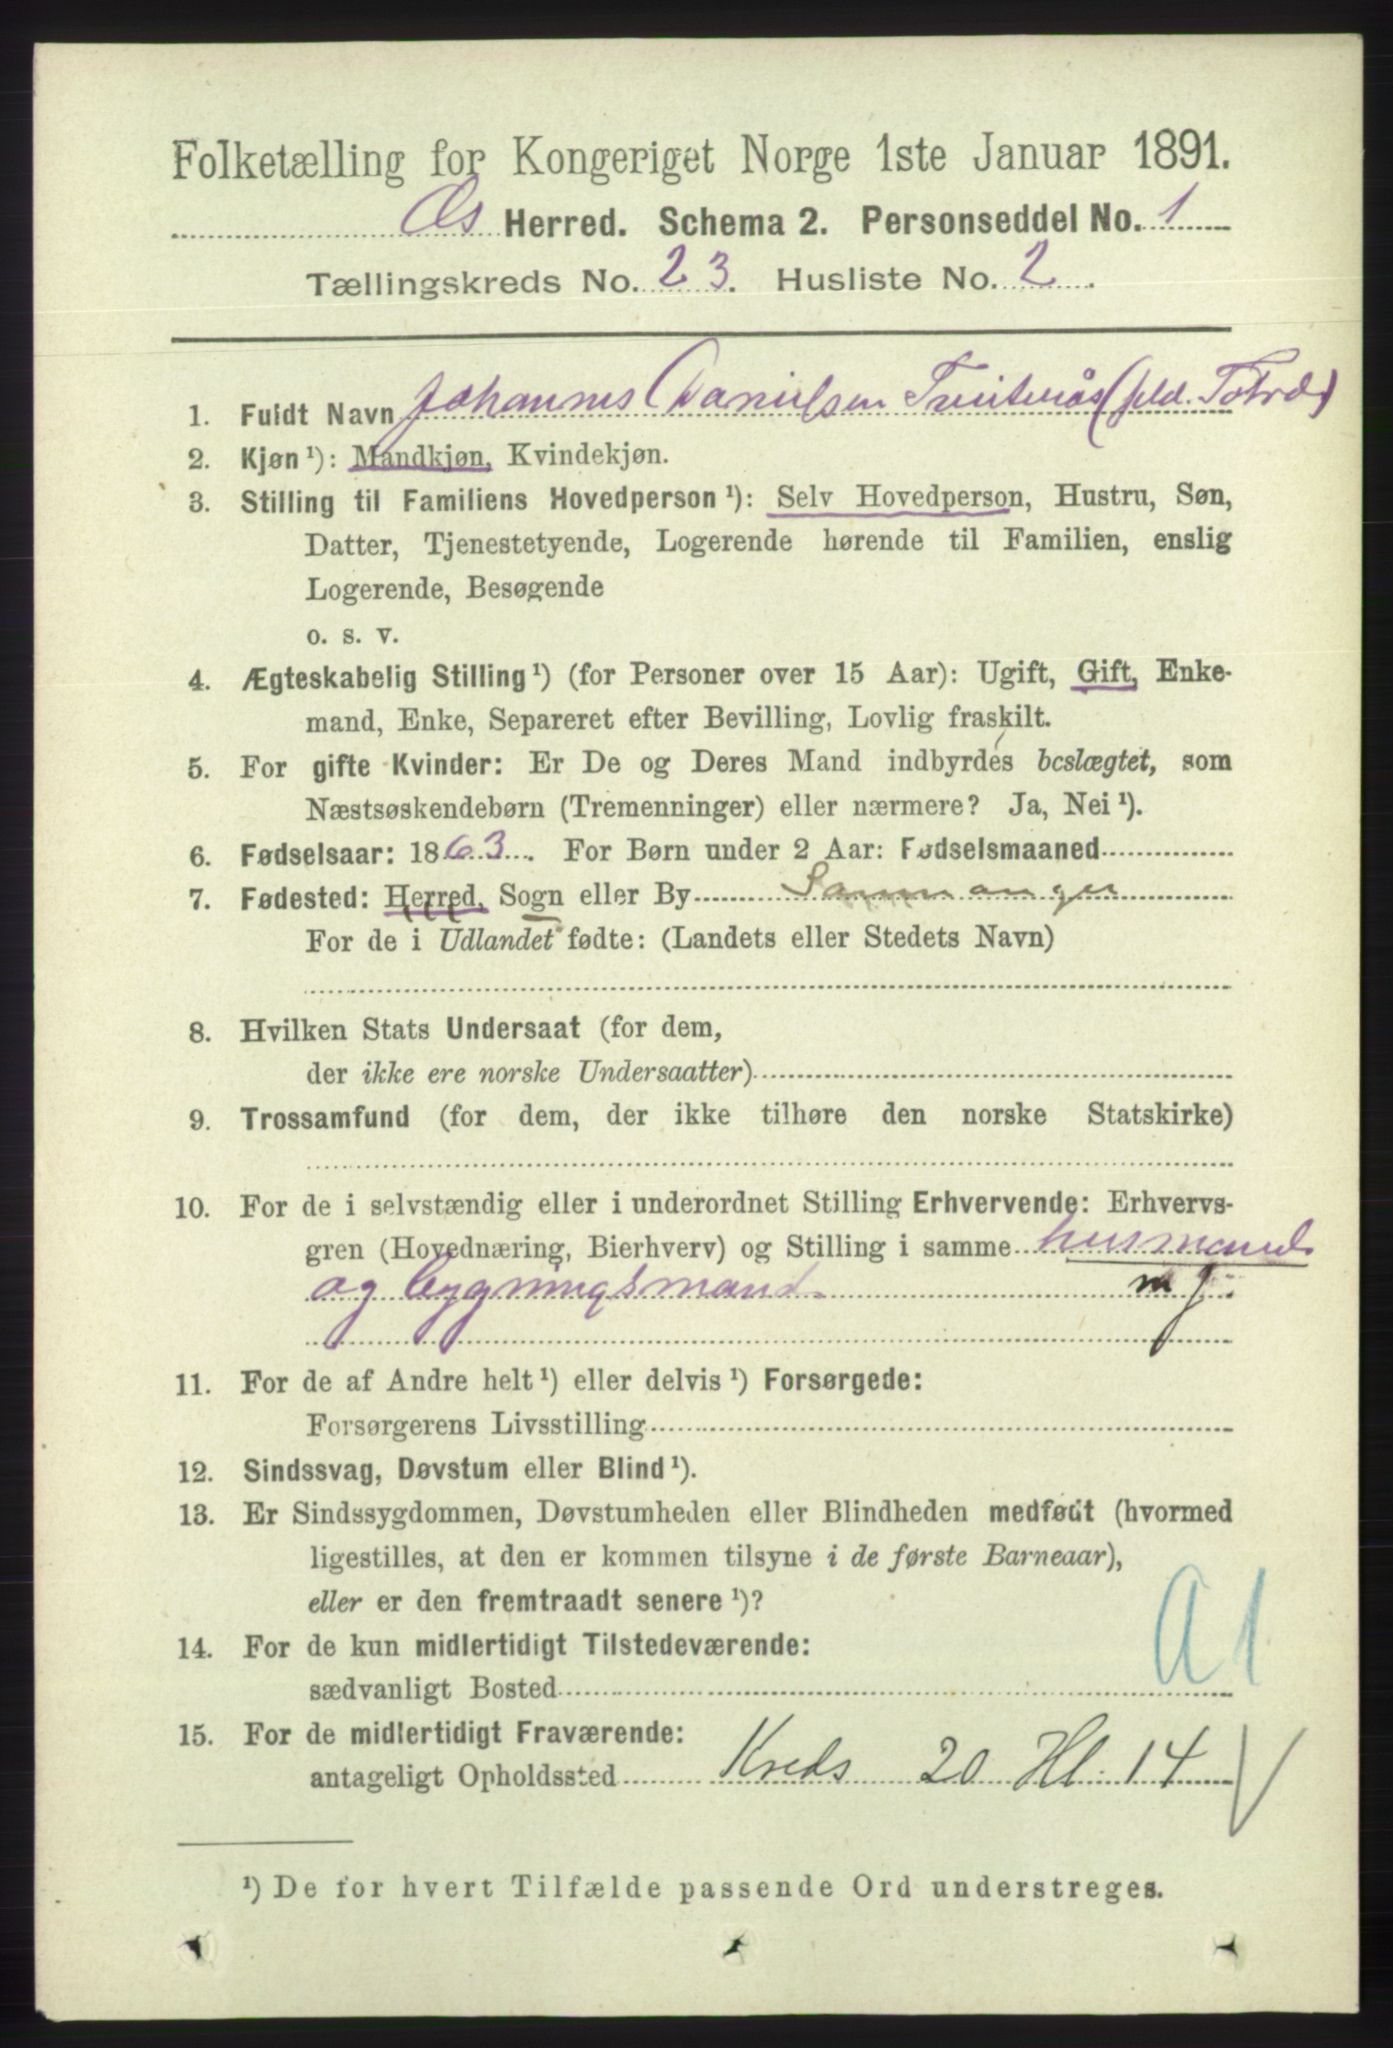 Folketælling for Kongeriget Norge 1ste Januar 1891.
Os Herred. Schema 2. Personseddel No. 1
Tællingskreds No. 23. Husliste No. 2.
1. Fuldt Navn Johannes Danielsen
2. Kjøn¹): Mandkjøn, Kvindekjøn.
3. Stilling til Familiens Hovedperson¹): Selv Hovedperson, Hustru, Søn,
Datter, Tjenestetyende, Logerende hørende til Familien, enslig
Logerende, Besøgende
o. s. v.
4. Ægteskabelig Stilling¹) (for Personer over 15 Aar): Ugift, Gift, Enke-
mand, Enke, Separeret efter Bevilling, Lovlig fraskilt.
5. For gifte Kvinder: Er De og Deres Mand indbyrdes beslægtet, som
Næstsøskendebørn (Tremenninger) eller nærmere? Ja, Nei¹).
6. Fødselsaar: 1863. For Børn under 2 Aar: Fødselsmaaned
7. Fødested: Herred, Sogn eller By Samnanger
For de i Udlandet fødte: (Landets eller Stedets Navn)
8. Hvilken Stats Undersaat (for dem,
der ikke ere norske Undersaatter)
9. Trossamfund (for dem, der ikke tilhøre den norske Statskirke)
10. For de i selvstændig eller i underordnet Stilling Erhvervende: Erhvervs-
gren (Hovednæring, Bierhverv) og Stilling i samme husmand
og bygningsmand. m j.
11. For de af Andre helt¹) eller delvis¹) Forsørgede:
Forsørgerens Livsstilling
12. Sindssvag, Døvstum eller Blind¹).
13. Er Sindssygdommen, Døvstumheden eller Blindheden medfødt (hvormed
ligestilles, at den er kommen tilsyne i de første Barneaar),
eller er den fremtraadt senere¹)?
A1
14. For de kun midlertidigt Tilstedeværende:
sædvanligt Bosted
15. For de midlertidigt Fraværende:
antageligt Opholdssted Kreds 20 Hl. 14
¹) De for hvert Tilfælde passende Ord understreges.